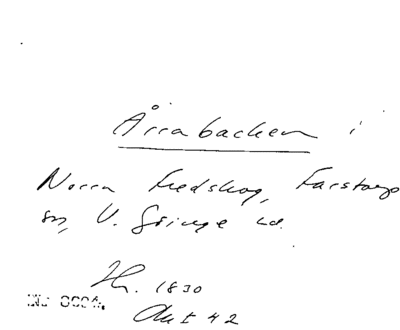 Årrabacken i
Norra Fedskog, Farstorp
sn, V. Göinge hd.
Hr. 1830
Akt 42